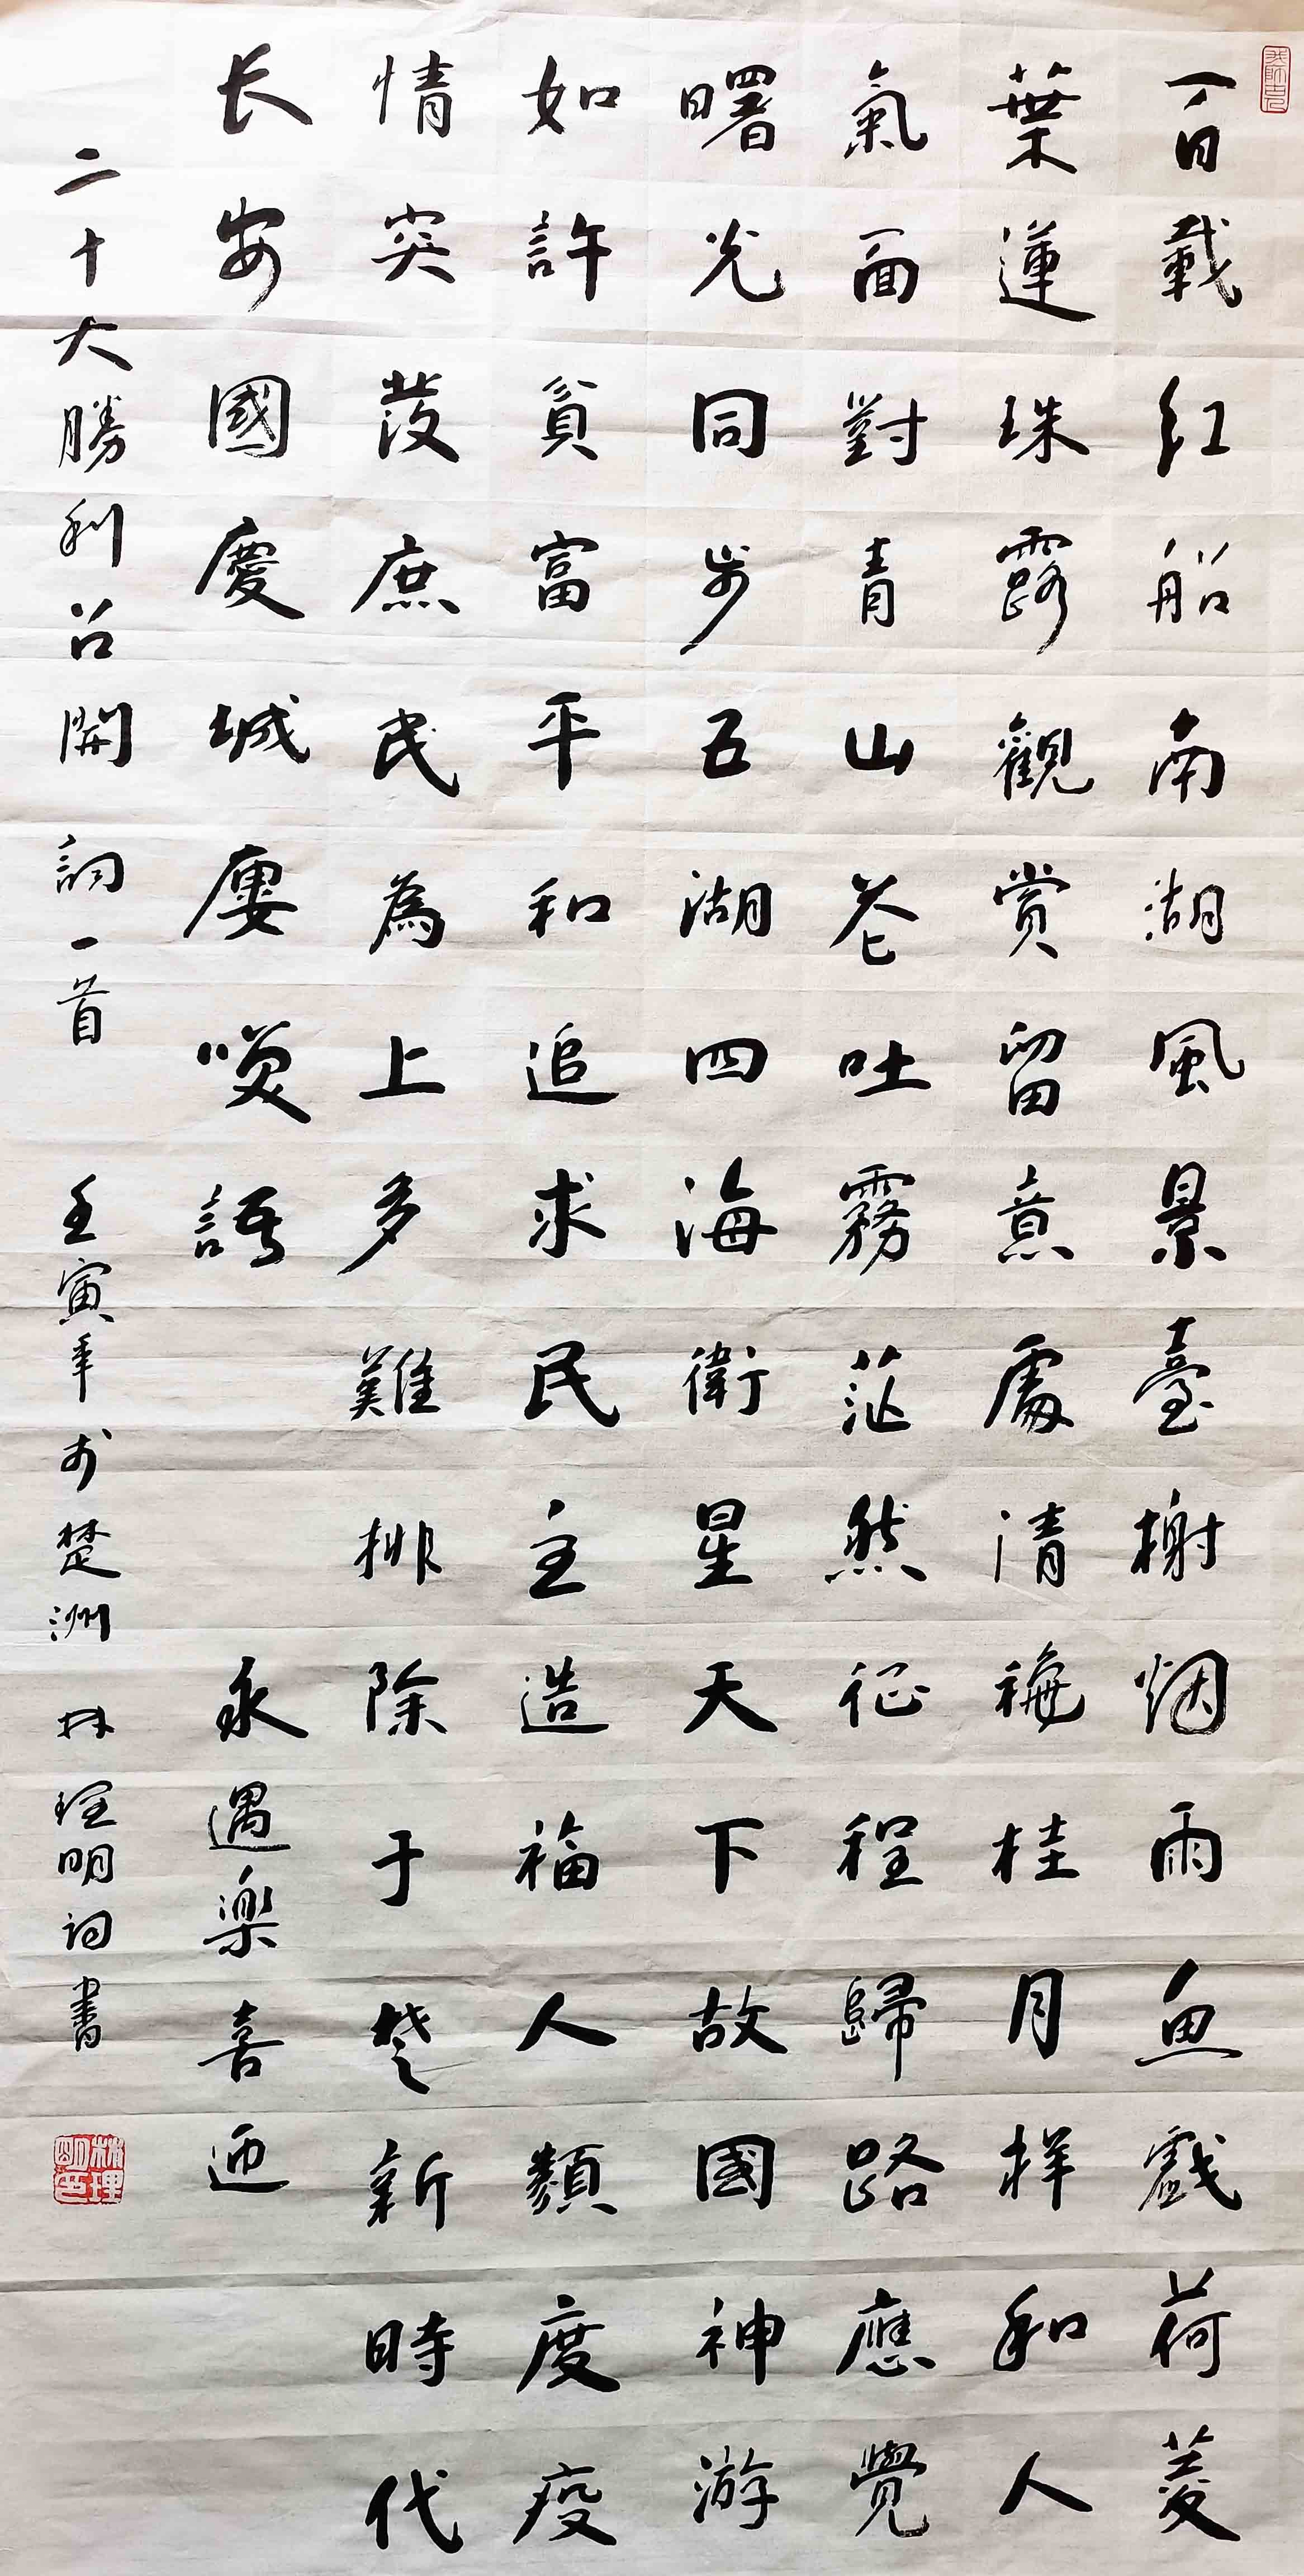 百載紅船南湖風景臺榭烟雨魚戲荷菱
葉蓮珠露觀賞留意處清穐桂月祥和人
氣面對青山卷吐霧茫然征程歸路應覺
曙光同步五湖四海衛星天下故國神游
如許貧富平和追求民主造福人類度疫
情突發庶民為上多難排除于楚新時代
长安國慶城慶喚語 永遇樂喜迎
二十大勝利召開 詞一首 壬寅年於楚洲 林理明詞書
林理明印